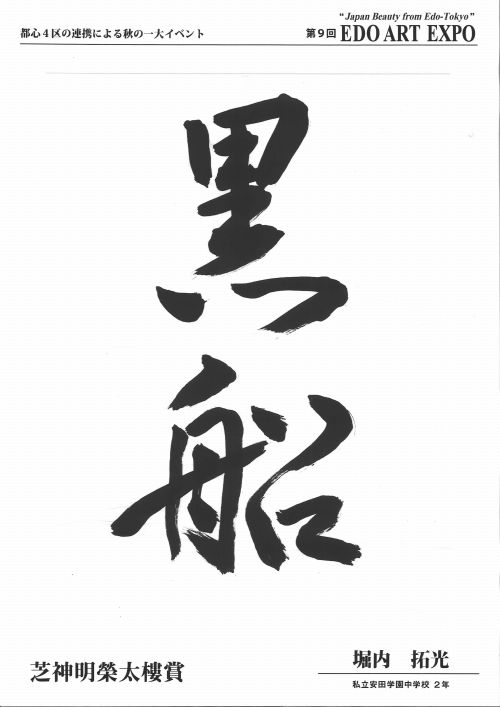 都心４区の連携による秋の一大イベント
"Japan Beauty from Edo-Tokyo"
第９回 EDO ART EXPO
黒
船
芝神明榮太樓賞
堀内 拓光
私立安田学園中学校 ２年